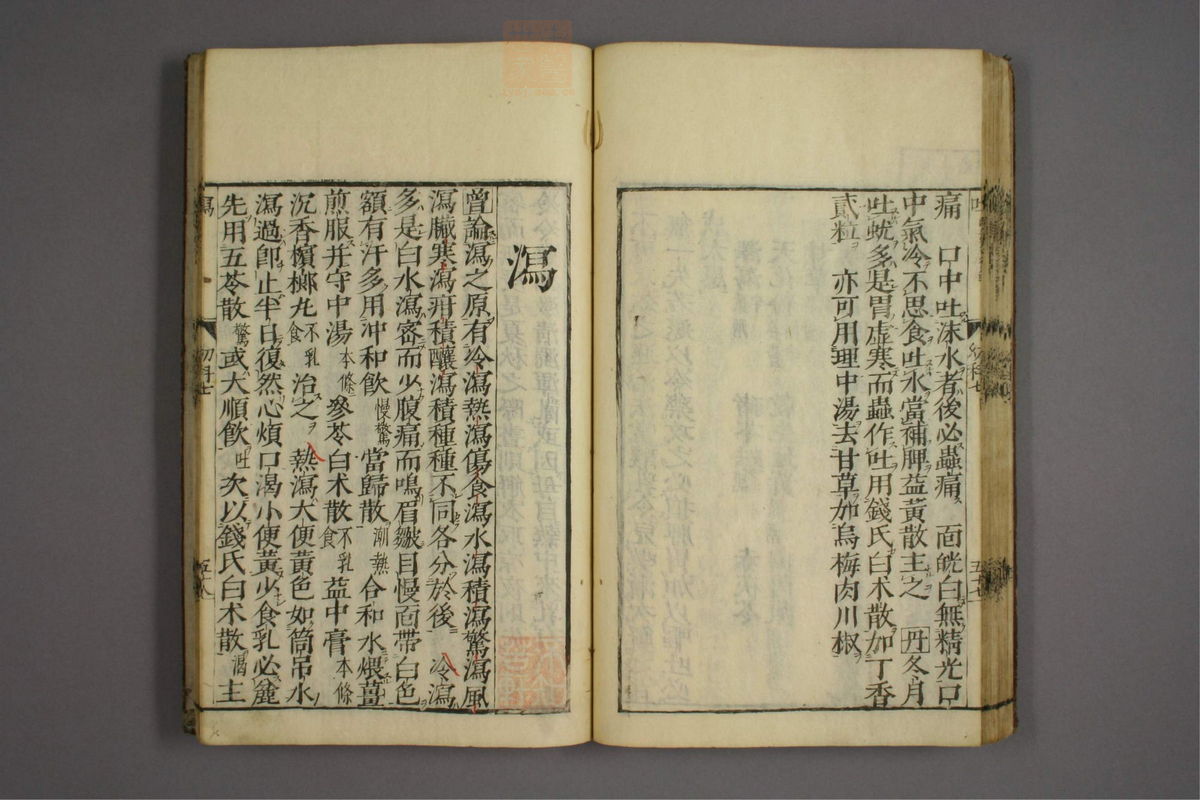 痛 口中吐沫水者後必蟲痛 面㿠白無精光口
中氣冷不思食吐水當補脾益黃散主之 丹 冬月
吐蚘多是胃虛寒而蟲作吐用錢氏白术散加丁香
貳粒 亦可用理中湯去甘草加烏梅肉川椒
瀉
曾論瀉之原有冷瀉熱瀉傷食瀉水瀉積瀉驚瀉風
瀉臟寒瀉疳積釀瀉積種種不同各分於後 冷瀉
多是白水瀉密而少腹痛而鳴眉皺目慢面帶白色
額有汗多用沖和飲慢驚當歸散潮熱合和水煨薑
煎服并守中湯本條參苓白术散不乳食益中膏本條
沉香檳榔丸不乳食治之 熱瀉大便黃色如筒吊水
瀉過即止半日復然心煩口渴小便黃少食乳必麄
先用五苓散驚或大順飲吐次以錢氏白术散渴主